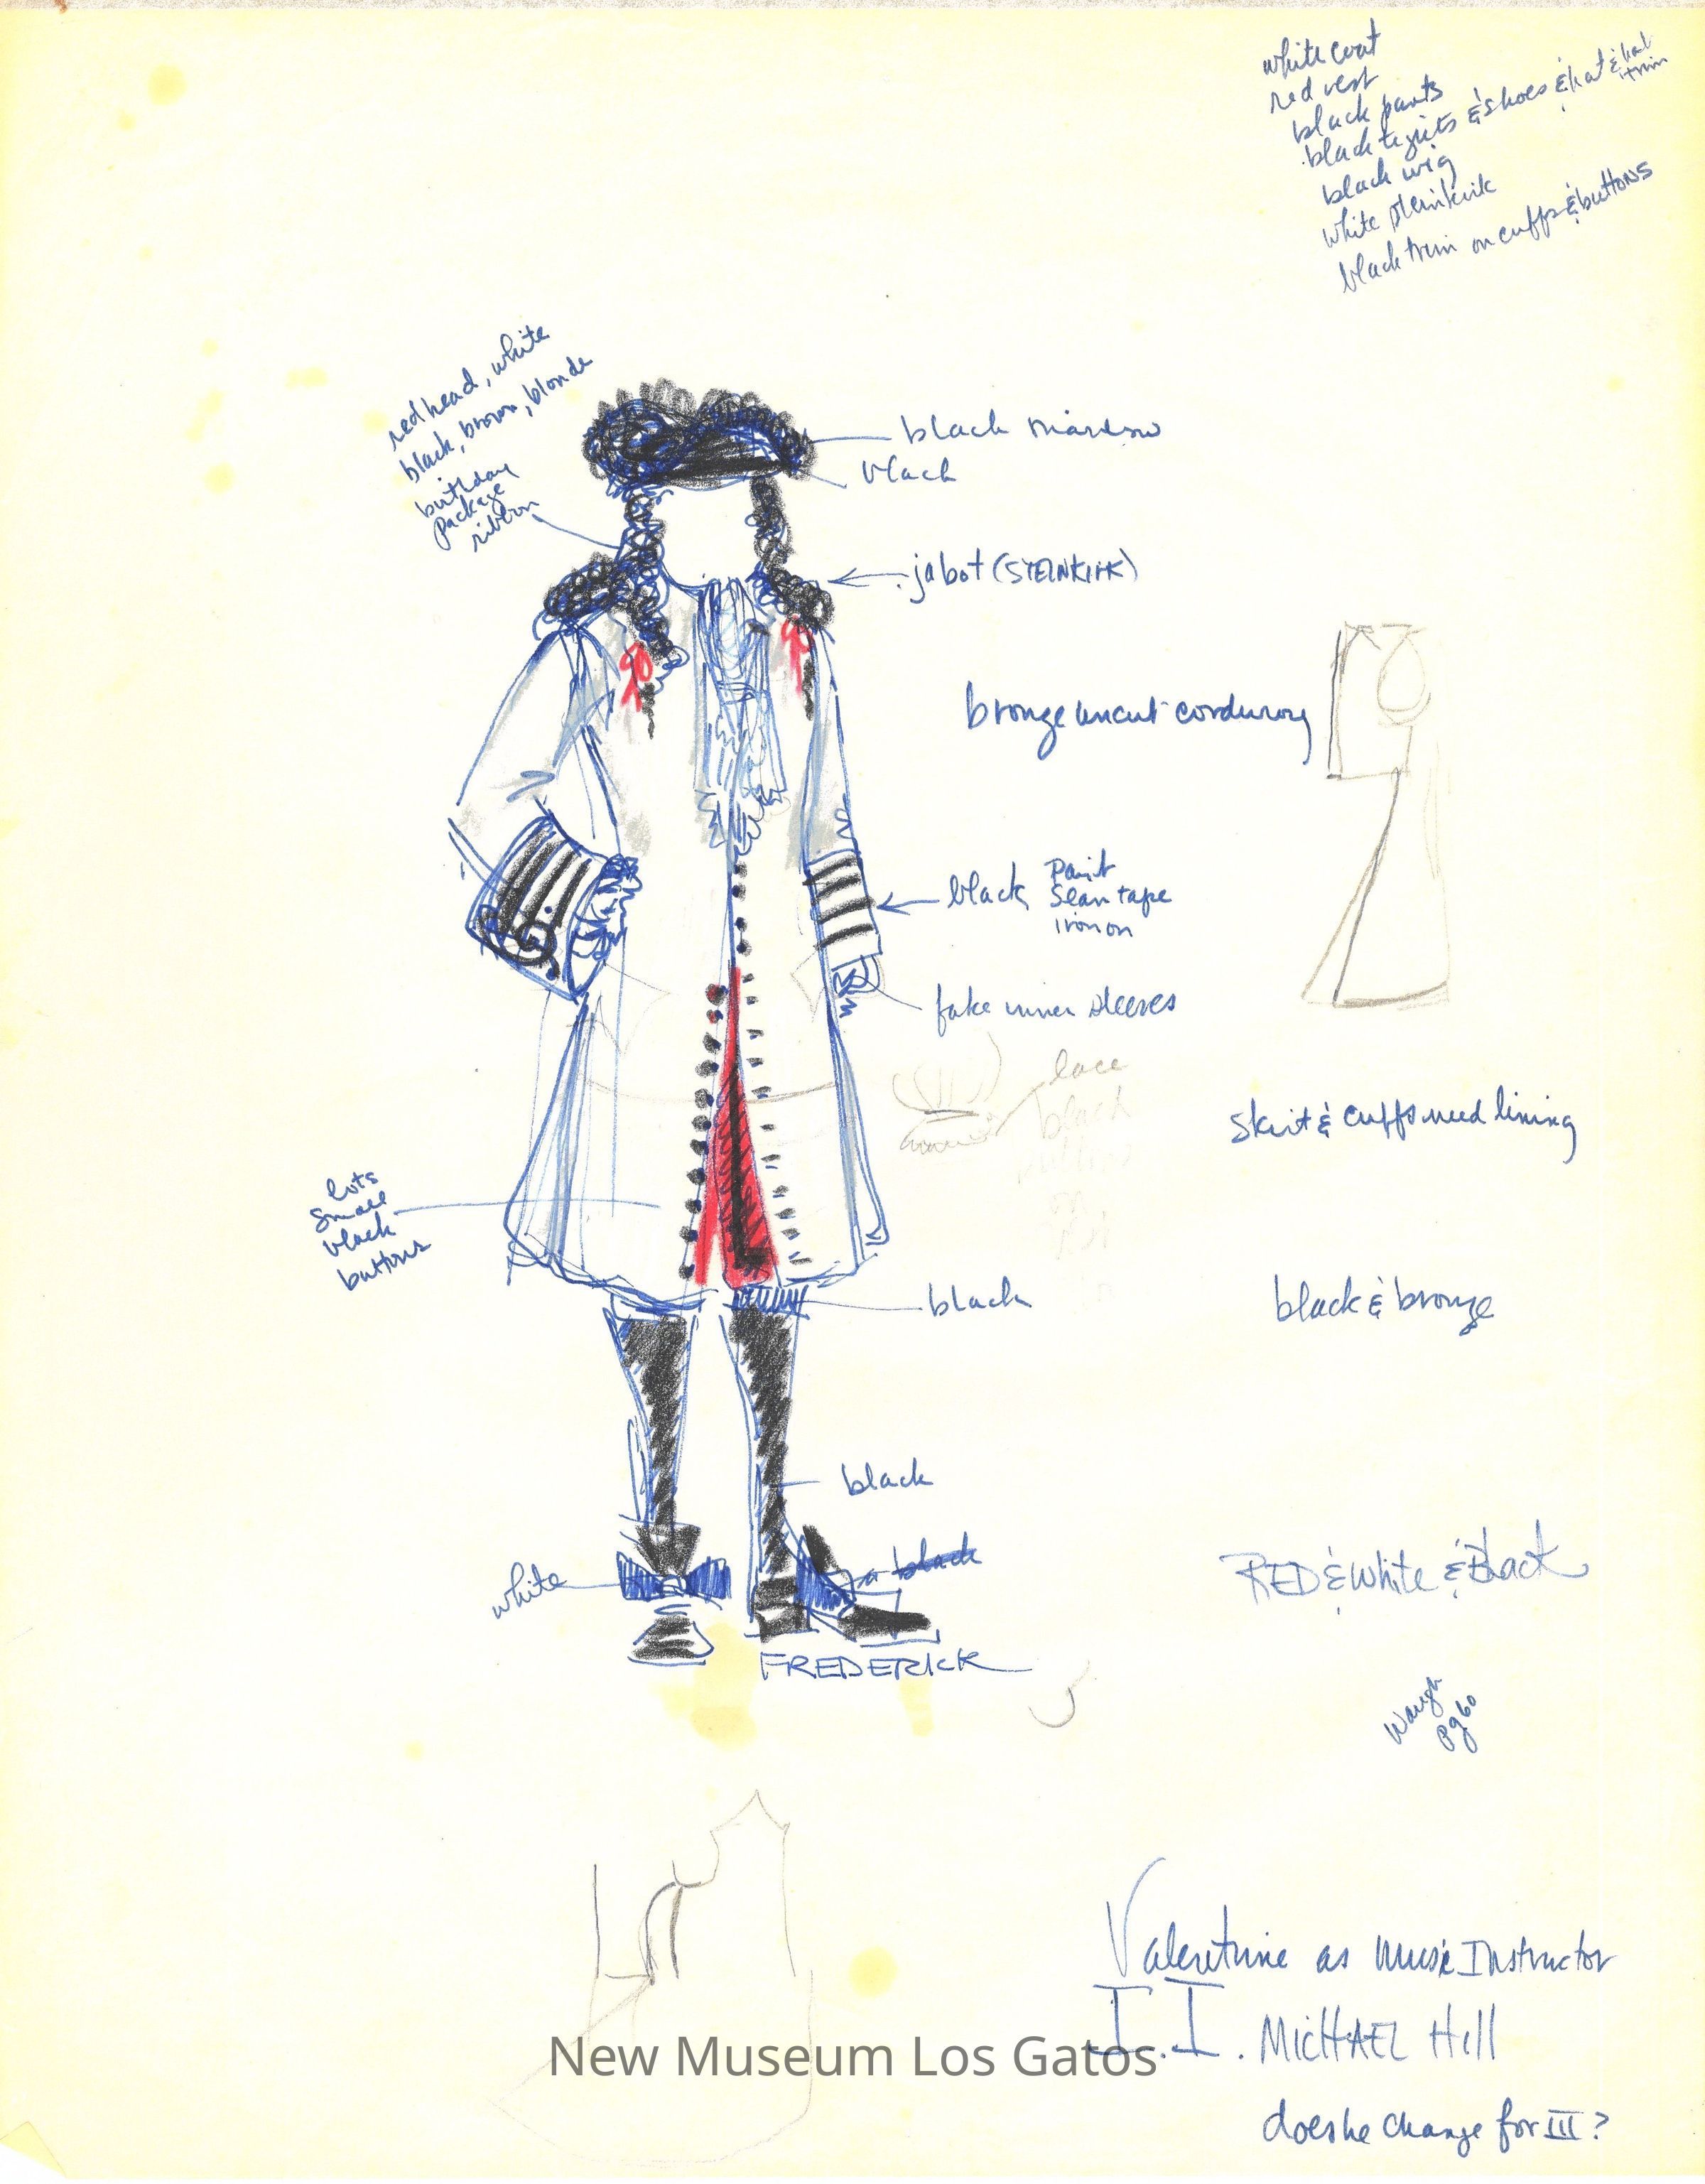 white coat
red vest
black pants
black tights & shoes & hat & hat trim
black wig
white steinkirk
black trim on cuffs & buttons
redhead, white
black, brown, blonde
birthday
package
ribbon
black
black
jabot (STEINKIRK)
bronze uncut corduroy
black
Paint
Seam tape
iron on
fake inner sleeves
lace
black
skirt & cuffs need lining
lots
small
black
buttons
black
black & bronze
black
black
white
RED & White & Black
FREDERICK
Waugh
Pg 60
Valentine as Music Instructor
I.I. MICHAEL Hill
New Museum Los Gatos
does he change for III?